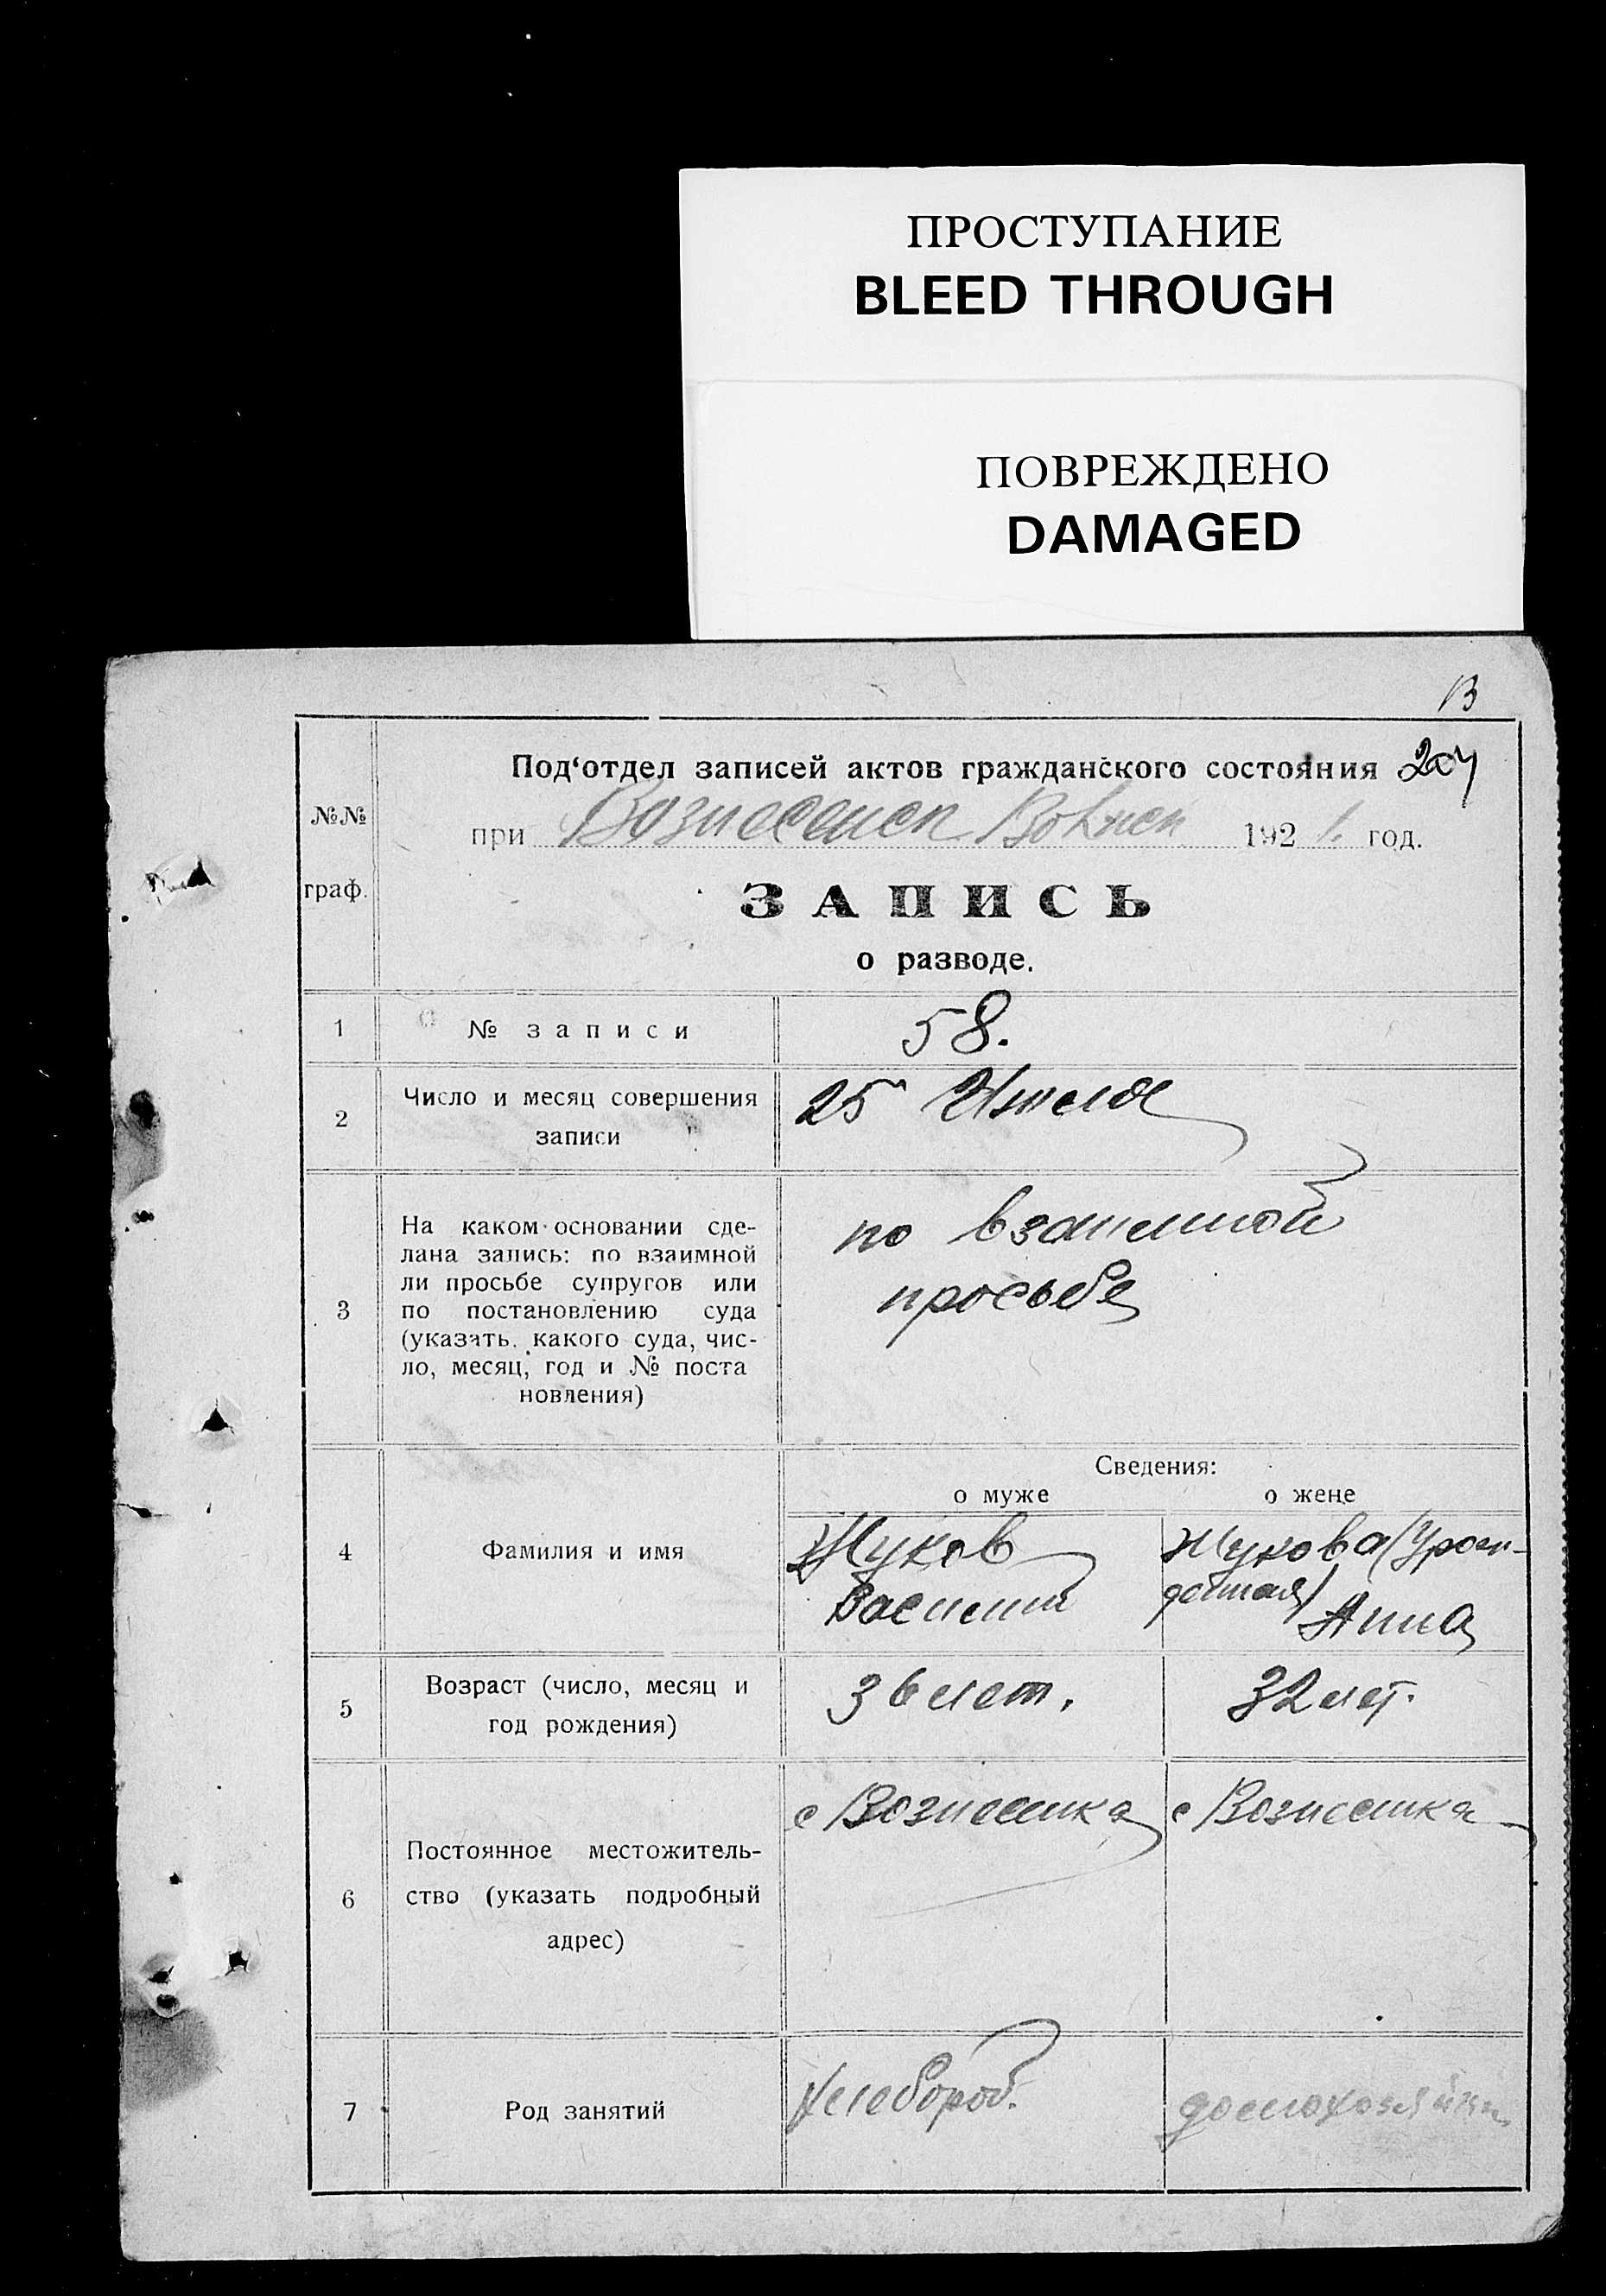 ПРОСТУПАНИЕ
BLEED THROUGH
ПОВРЕЖДЕНО
DAMAGED
13
Под‘отдел записей актов гражданского состояния 204
№№
при Вознесенск 192 1. год.
граф.
ЗАПИСЬ
о разводе.
1 № записи 58.
2 Число и месяц совершения
записи
25 Июля
3 На каком основании сде-
лана запись: по взаимной
ли просьбе супругов или
по постановлению суда
(указать. какого суда, чис-
ло, месяц, год и № поста
новления)
по взаимной
просьбе
Сведения:
о муже о жене
4 Фамилия и имя
Жуков
Василий
Жукова (Урож-
денная)
Анна
5 Возраст (число, месяц и
год рождения)
36 лет. 32 лет.
6 Постоянное местожитель-
ство (указать подробный
адрес)
с Вознесенка с Вознесенка
7 Род занятий
хлебороб. домохозяйка